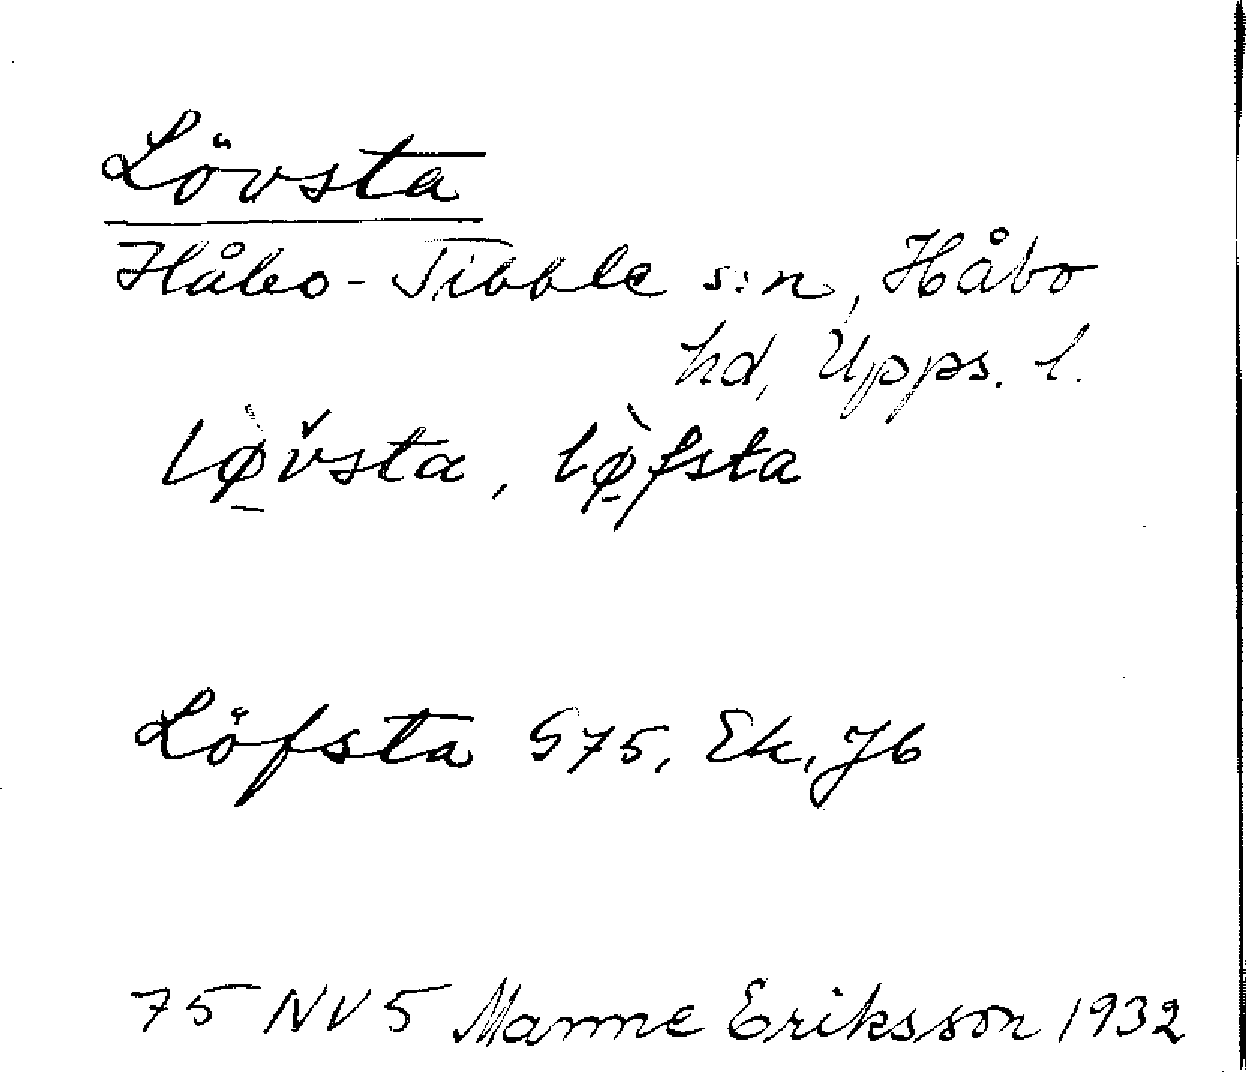 Lövsta
Håbo-Tibble s:n, Håbo
hd, Upps. l.
lø̱̀v̌sta, lø̱̀fsta
Löfsta G75, Ek, Jb
75 NV5 Manne Eriksson 1932